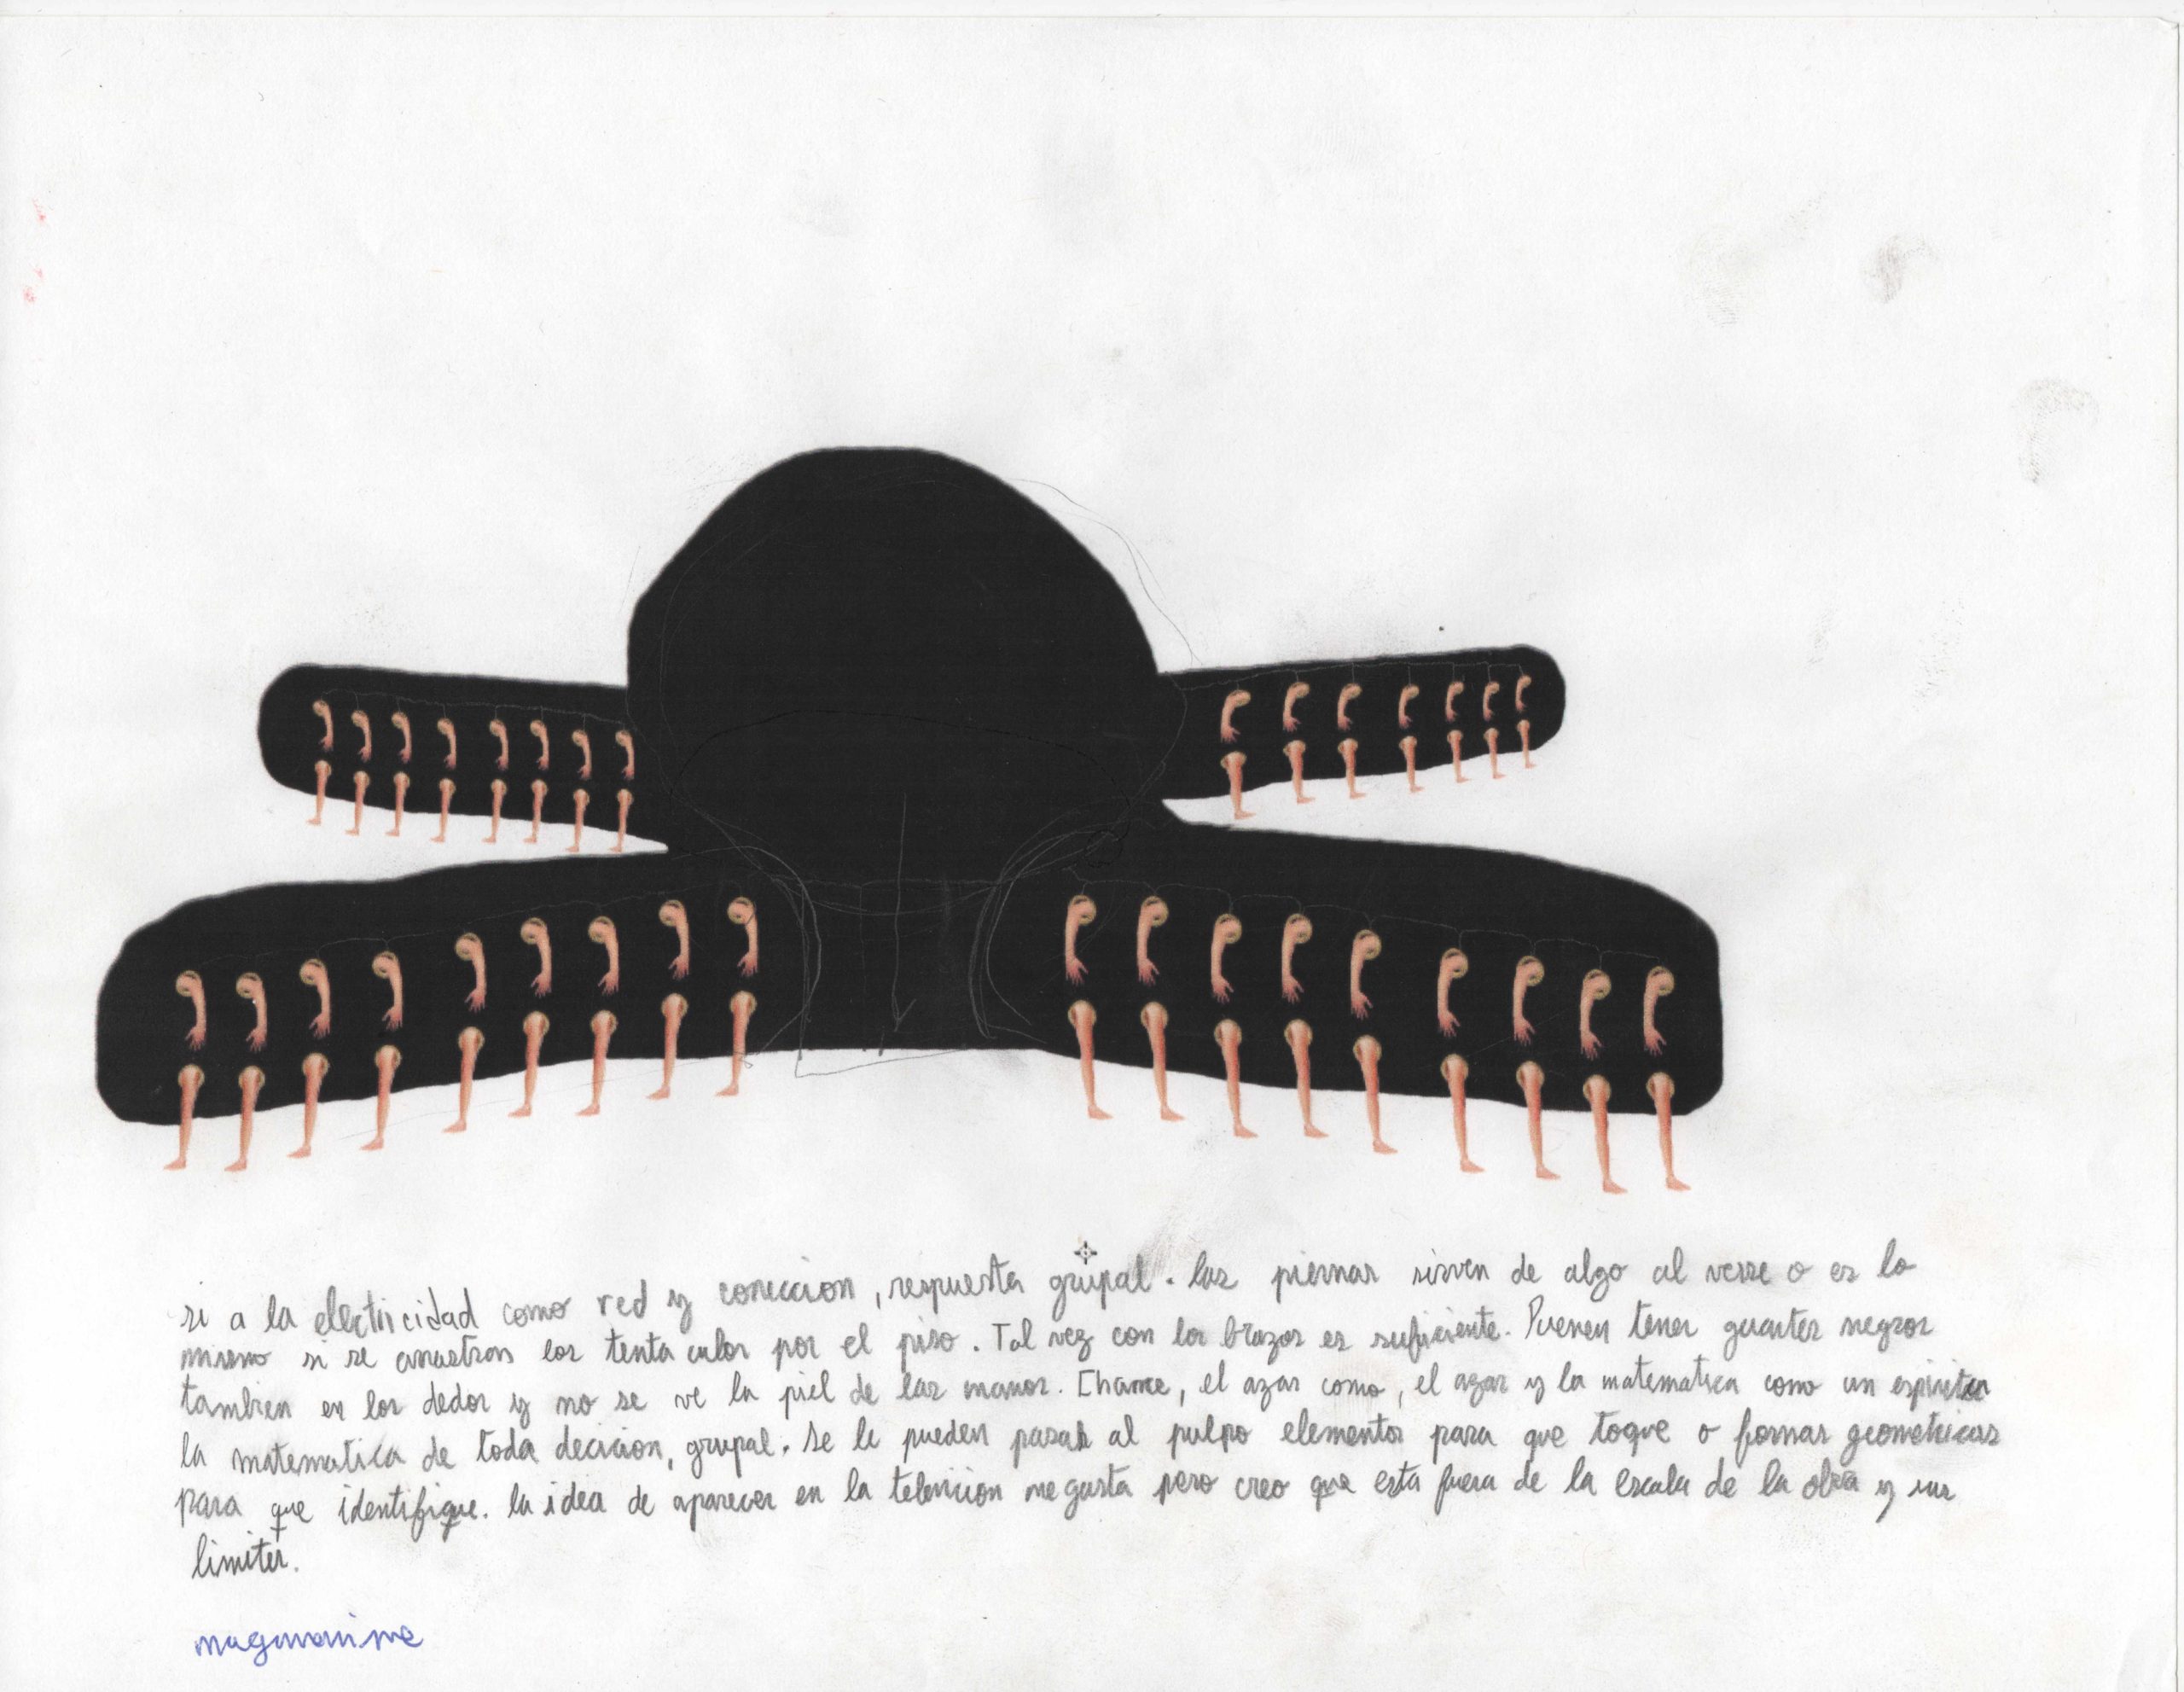 si a la electricidad como red y coneccion, respuesta grupal. las piernas sirven de algo al verse o es lo
mismo si se arrastran los tentaculos por el piso. Tal vez con los brazos es suficiente. Pueden tener guantes negros
tambien en los dedos y no se ve la piel de las manos. Chance, el azar como, el azar y la matematica como un espiritu
la matematica de toda decicion, grupal. se le pueden pasar al pulpo elementos para que toque o formas geometricas
para que identifique. la idea de aparecer en la television me gusta pero creo que esta fuera de la escala de la obra y sus
limites.